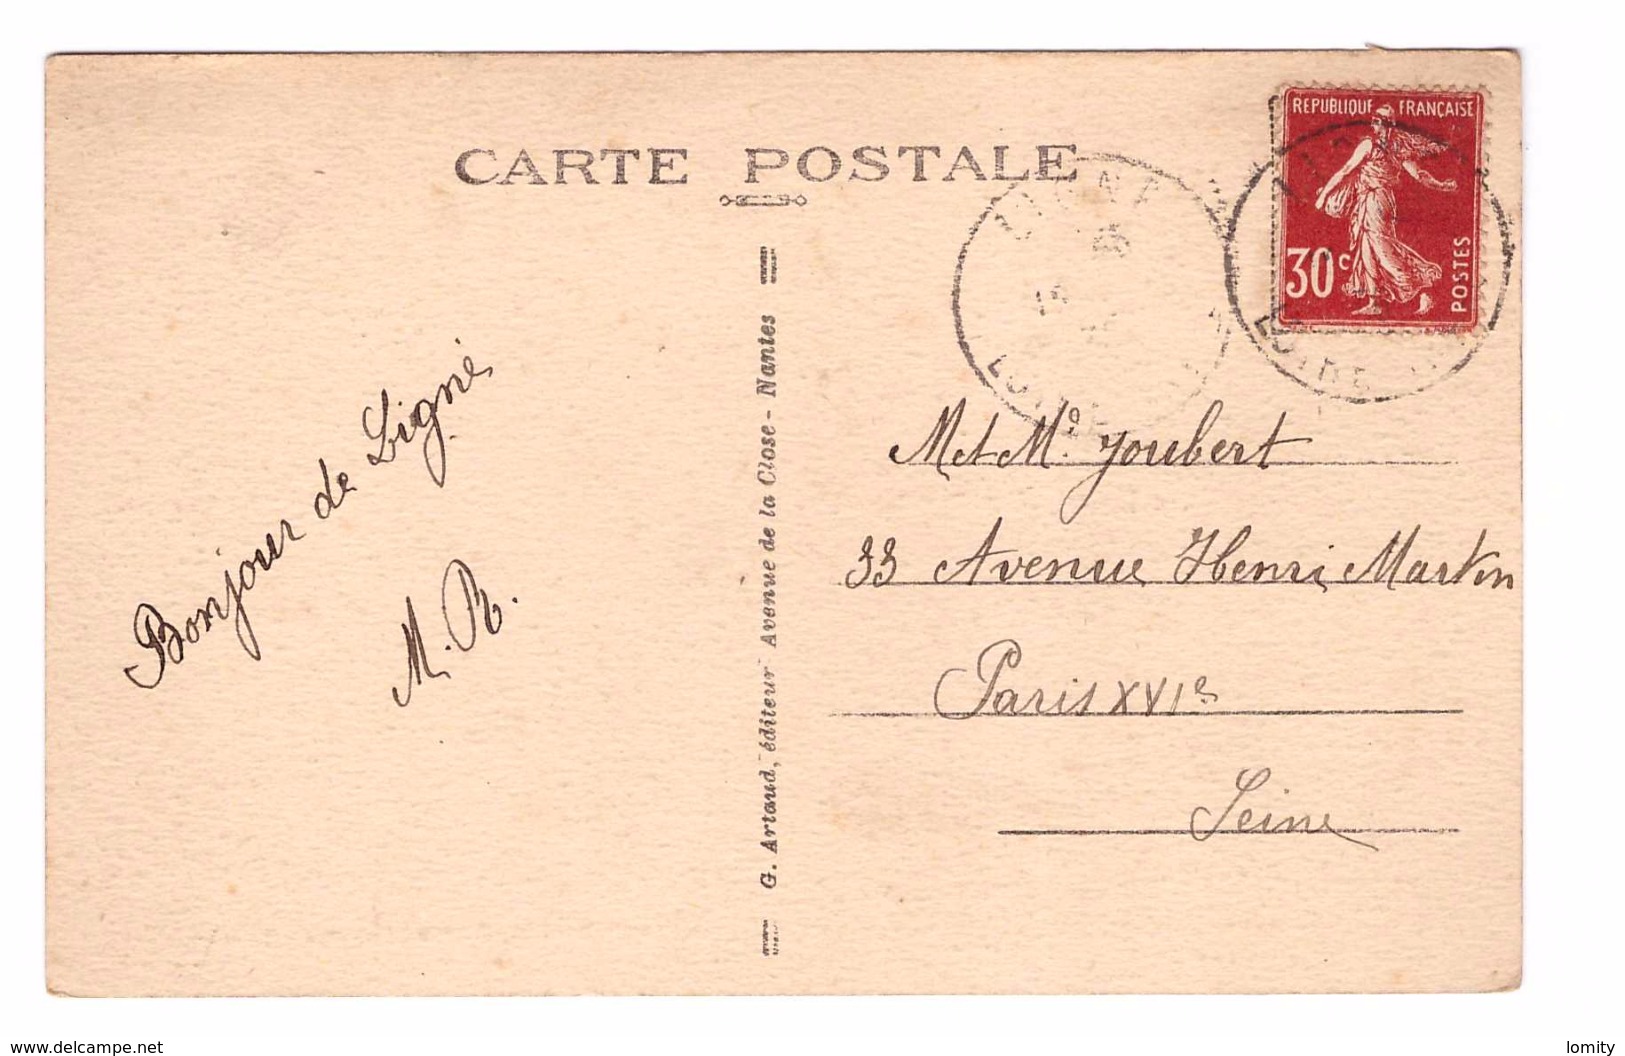 CARTE POSTALE
REPUBLIQUE FRANÇAISE
30c
POSTES
LIGNÉ
LOIRE
LOIRE
Bonjour de Ligné
M. R.
G. Artaud, éditeur Avenue de la Close - Nantes
M et Me. Joubert
33 Avenue Henri Martin
Paris XVIe
Seine
www.delcampe.net
lomity